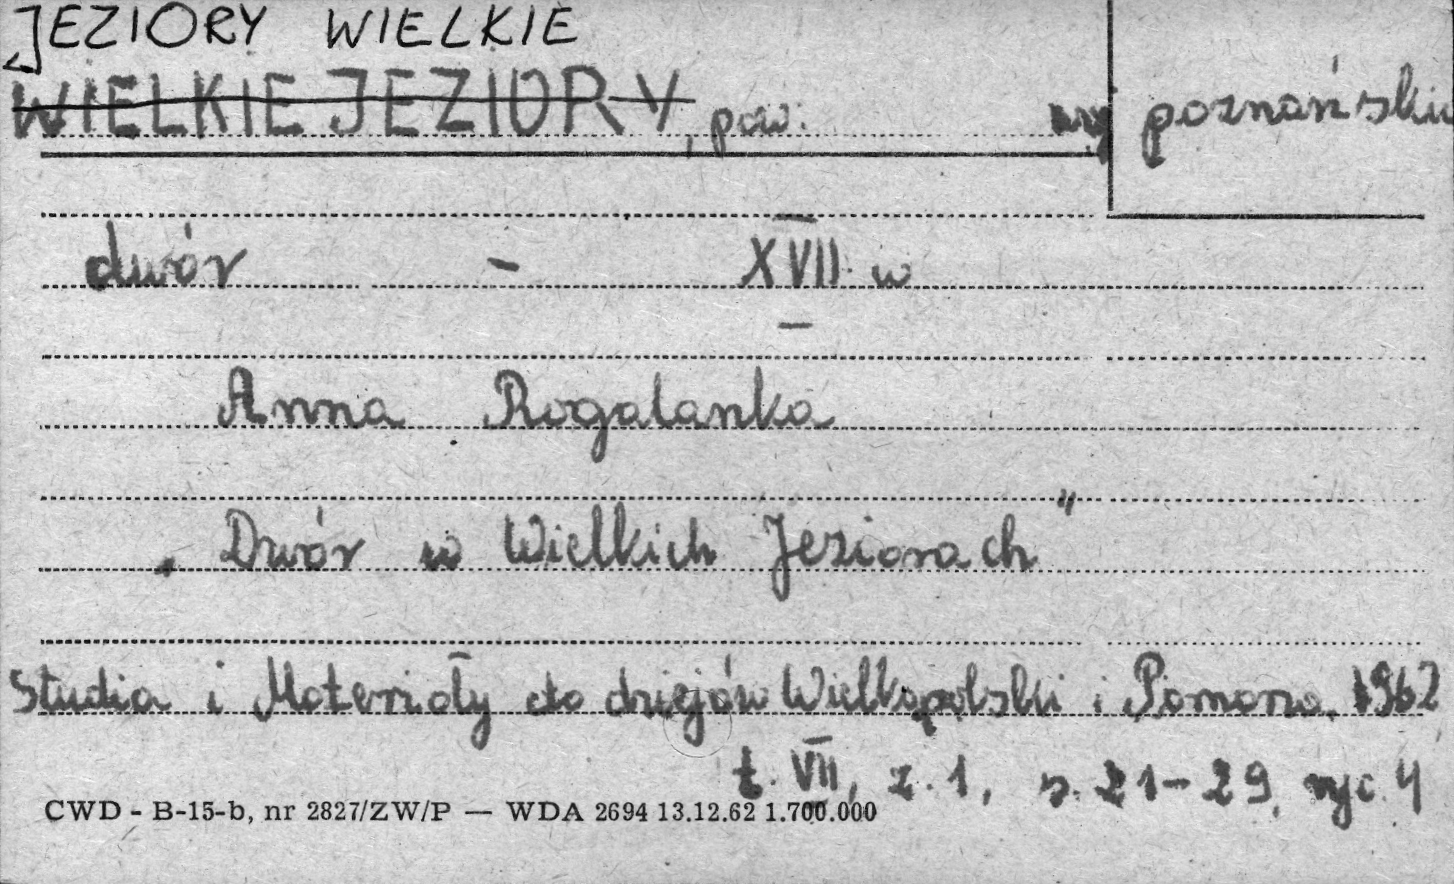 JEZIORY WIELKIE
WIELKIE JEZIORY, pow. poznański
dwór - XVII w
Anna Rogalanka
„Dwór w Wielkich Jeziorach"
Studia i Materiały do dziejów Wielkopolski i Pomorza. 1962
t. VII, z. 1, s. 21-29, ryc. 4
CWD - B-15-b, nr 2827/ZW/P — WDA 2694 13.12.62 1.700.000